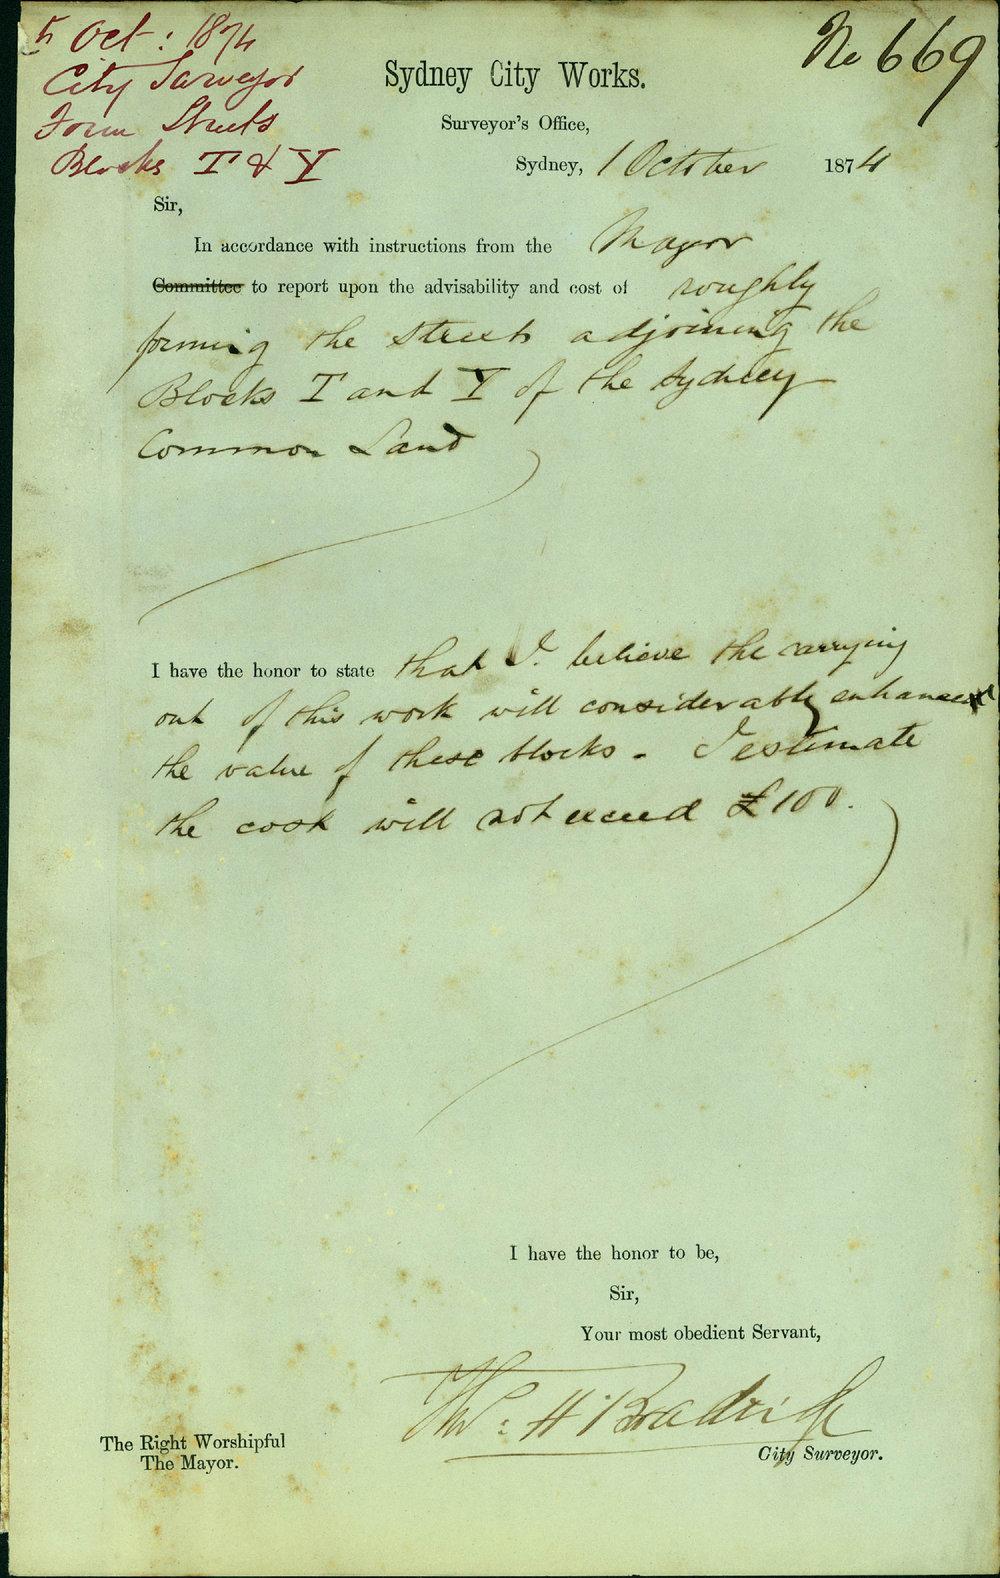 5 Oct : 1874
City Surveyor
Form Streets
Blocks T & Y
No 669
Sydney City Works.
Surveyor's Office,
Sydney, 1 October 1874
Sir,
In accordance with instructions from the Mayor
Committee to report upon the advisability and cost of roughly
forming the streets adjoining the
Blocks T and Y of the Sydney
Common Land
I have the honor to state that I believe the carrying
out of this work will considerably enhance
the value of these blocks - I estimate
the cost will not exceed £100.
I have the honor to be,
Sir,
Your most obedient Servant,
Thos: H Bradridge
City Surveyor.
The Right Worshipful
The Mayor.